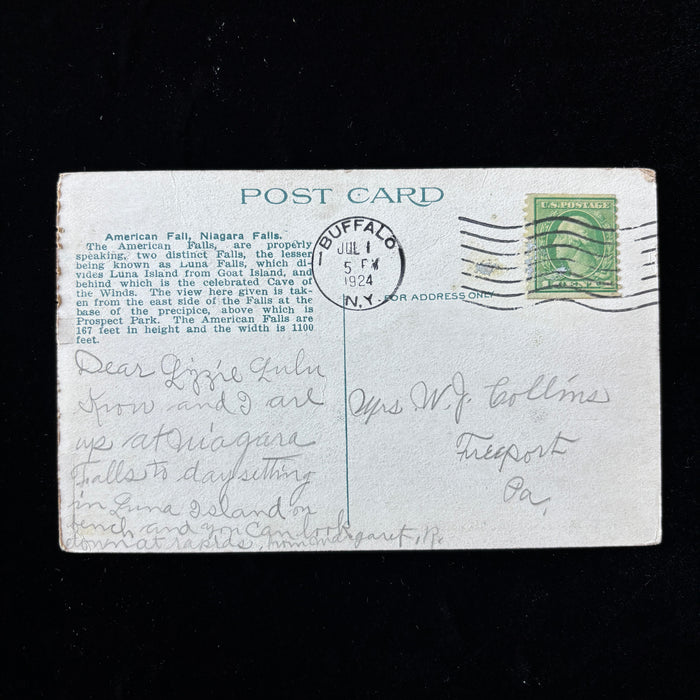 POST CARD
American Fall, Niagara Falls.
The American Falls, are properly
speaking, two distinct Falls, the lesser
being known as Luna Falls, which di-
vides Luna Island from Goat Island, and
behind which is the celebrated Cave of
the Winds. The view here given is tak-
en from the east side of the Falls at the
base of the precipice, above which is
Prospect Park. The American Falls are
167 feet in height and the width is 1100
feet.
BUFFALO
JUL 1
5 PM
1924
N.Y.
1
U.S. POSTAGE
1 CENT
FOR ADDRESS ONLY
Dear Lizzie Lulu
Krow and I are
up at Niagara
Falls to day setting
in Luna Island on
bench and you can look
down at rapids, from Margaret, R.
Mrs W. J. Collins
Freeport
Pa,